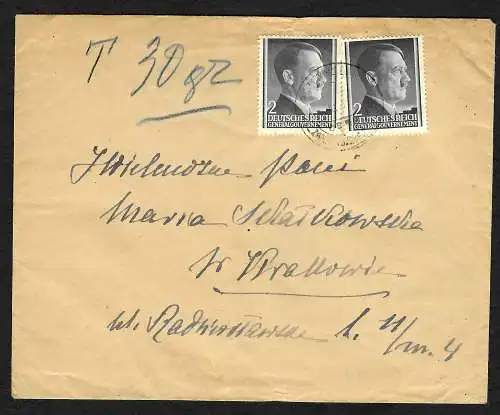 T 30 gr
2 2
DEUTSCHES REICH DEUTSCHES REICH
GENERALGOUVERNEMENT GENERALGOUVERNEMENT
JWielmożna Pani
Maria
w Krakowie
ul. l. 11/m. 4